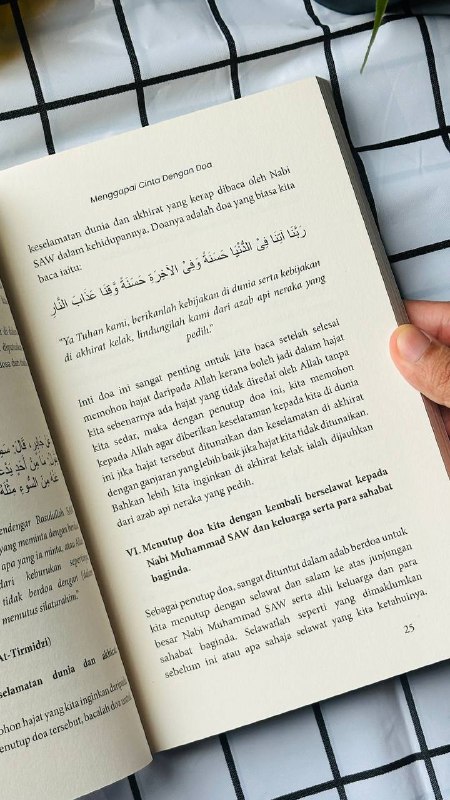 dengar Rasulullah SAW
yang meminta dengan
apa yang ia minta, atau Allah
dari keburukan seperti
tidak berdoa dengan
memutus silaturahim."
At-Tirmidzi)
selamatan dunia dan akhirat
ohon hajat yang kita inginkan daripada
enutup doa tersebut, bacalah doa untuk
Menggapai Cinta Dengan Doa
keselamatan dunia dan akhirat yang kerap dibaca oleh Nabi
SAW dalam kehidupannya. Doanya adalah doa yang biasa kita
baca iaitu:
رَبَّنَا آتِنَا فِى الدُّنْيَا حَسَنَةً وَفِى الْآخِرَةِ حَسَنَةً وَّقِنَا عَذَابَ النَّارِ
"Ya Tuhan kami, berikanlah kebijakan di dunia serta kebijakan
di akhirat kelak, lindungilah kami dari azab api neraka yang
pedih."
Inti doa ini sangat penting untuk kita baca setelah selesai
memohon hajat daripada Allah kerana boleh jadi dalam hajat
kita sebenarnya ada hajat yang tidak diredai oleh Allah tanpa
kita sedar, maka dengan penutup doa ini, kita memohon
kepada Allah agar diberikan keselataman kepada kita di dunia
ini jika hajat tersebut ditunaikan dan keselamatan di akhirat
dengan ganjaran yang lebih baik jika hajat kita tidak ditunaikan.
Bahkan lebih kita inginkan di akhirat kelak ialah dijauhkan
dari azab api neraka yang pedih.
VI. Menutup doa kita dengan kembali berselawat kepada
Nabi Muhammad SAW dan keluarga serta para sahabat
baginda.
Sebagai penutup doa, sangat dituntut dalam adab berdoa untuk
kita menutup dengan selawat dan salam ke atas junjungan
besar Nabi Muhammad SAW serta ahli keluarga dan para
sahabat baginda. Selawatlah seperti yang dimaklumkan
sebelum ini atau apa sahaja selawat yang kita ketahuinya.
25